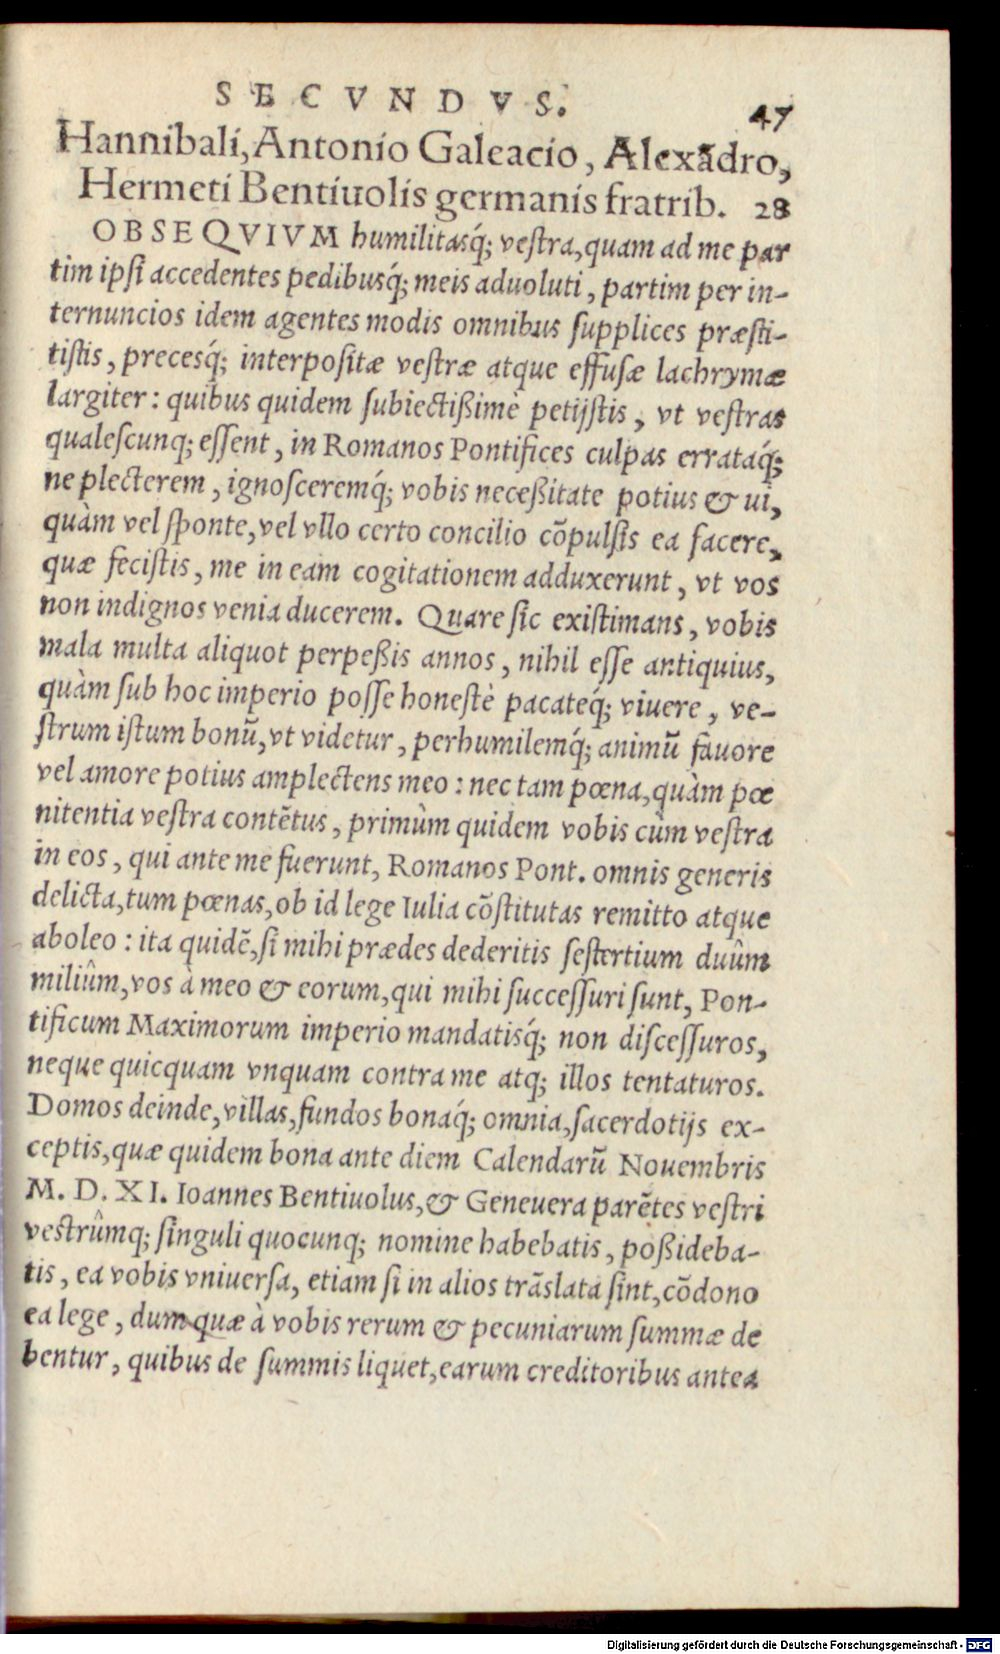 SECVNDVS.
47
Hannibali, Antonio Galeacio, Alexãdro,
Hermeti Bentiuolis germanis fratrib. 28
OBSEQVIVM humilitasq́; vestra, quam ad me par
tim ipsi accedentes pedibusq́; meis aduoluti, partim per in-
ternuncios idem agentes modis omnibus supplices præsti-
tistis, precesq́; interpositæ vestræ atque effusæ lachrymæ
largiter: quibus quidem subiectißimè petijstis, vt vestras
qualescunq; essent, in Romanos Pontifices culpas errataq́;
ne plecterem, ignosceremq́; vobis neceßitate potius & ui,
quàm vel sponte, vel vllo certo concilio cõpulsis ea facere,
quæ fecistis, me in eam cogitationem adduxerunt, vt vos
non indignos venia ducerem. Quare sic existimans, vobis
mala multa aliquot perpeßis annos, nihil esse antiquius,
quàm sub hoc imperio posse honestè pacateq́; viuere, ve-
strum istum bonũ, vt videtur, perhumilemq́; animũ fauore
vel amore potius amplectens meo: nec tam pœna, quàm pœ
nitentia vestra contẽtus, primùm quidem vobis cùm vestra
in eos, qui ante me fuerunt, Romanos Pont. omnis generis
delicta, tum pœnas, ob id lege Iulia cõstitutas remitto atque
aboleo: ita quidẽ, si mihi prædes dederitis sestertium duûm
milium̂, vos à meo & eorum, qui mihi successuri sunt, Pon-
tificum Maximorum imperio mandatisq́; non discessuros,
neque quicquam vnquam contra me atq; illos tentaturos.
Domos deinde, villas, fundos bonaq́; omnia, sacerdotijs ex-
ceptis, quæ quidem bona ante diem Calendarũ Nouembris
M. D. XI. Ioannes Bentiuolus, & Geneuera parẽtes vestri
vestrûmq; singuli quocunq; nomine habebatis, poßideba-
tis, ea vobis vniuersa, etiam si in alios trãslata sint, cõdono
ea lege, dum quæ à vobis rerum & pecuniarum summæ de
bentur, quibus de summis liquet, earum creditoribus antea
Digitalisierung gefördert durch die Deutsche Forschungsgemeinschaft - DFG